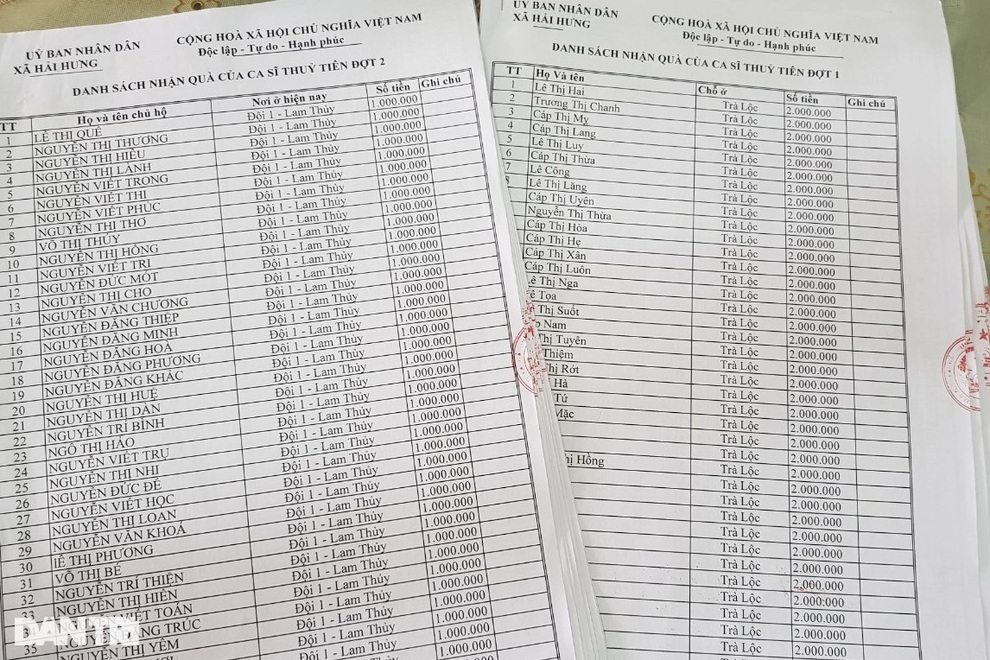 UỶ BAN NHÂN DÂN
XÃ HẢI HƯNG
CỘNG HOÀ XÃ HỘI CHỦ NGHĨA VIỆT NAM
Độc lập - Tự do - Hạnh phúc
DANH SÁCH NHẬN QUÀ CỦA CA SĨ THUỶ TIÊN ĐỢT 2
TT Họ và tên chủ hộ Nơi ở hiện nay Số tiền Ghi chú
1 LÊ THỊ QUẾ Đội 1 - Lam Thủy 1.000.000
2 NGUYỄN THỊ THƯƠNG Đội 1 - Lam Thủy 1.000.000
3 NGUYỄN THỊ HIẾU Đội 1 - Lam Thủy 1.000.000
4 NGUYỄN THỊ LÀNH Đội 1 - Lam Thủy 1.000.000
5 NGUYỄN VIẾT TRỌNG Đội 1 - Lam Thủy 1.000.000
6 NGUYỄN VIẾT THI Đội 1 - Lam Thủy 1.000.000
7 NGUYỄN VIẾT PHÚC Đội 1 - Lam Thủy 1.000.000
8 NGUYỄN THỊ THƠ Đội 1 - Lam Thủy 1.000.000
9 VÕ THỊ THỦY Đội 1 - Lam Thủy 1.000.000
10 NGUYỄN THỊ HỒNG Đội 1 - Lam Thủy 1.000.000
11 NGUYỄN VIẾT TRÍ Đội 1 - Lam Thủy 1.000.000
12 NGUYỄN ĐỨC MÓT Đội 1 - Lam Thủy 1.000.000
13 NGUYỄN THỊ CHO Đội 1 - Lam Thủy 1.000.000
14 NGUYỄN VĂN CHƯƠNG Đội 1 - Lam Thủy 1.000.000
15 NGUYỄN ĐĂNG THIỆP Đội 1 - Lam Thủy 1.000.000
16 NGUYỄN ĐĂNG MINH Đội 1 - Lam Thủy 1.000.000
17 NGUYỄN ĐĂNG HOÀ Đội 1 - Lam Thủy 1.000.000
18 NGUYỄN ĐĂNG PHƯƠNG Đội 1 - Lam Thủy 1.000.000
19 NGUYỄN ĐĂNG KHẮC Đội 1 - Lam Thủy 1.000.000
20 NGUYỄN THỊ HUỆ Đội 1 - Lam Thủy 1.000.000
21 NGUYỄN THỊ DÀN Đội 1 - Lam Thủy 1.000.000
22 NGUYỄN TRÍ BÌNH Đội 1 - Lam Thủy 1.000.000
23 NGÔ THỊ HẢO Đội 1 - Lam Thủy 1.000.000
24 NGUYỄN VIẾT TRỤ Đội 1 - Lam Thủy 1.000.000
25 NGUYỄN THỊ NHI Đội 1 - Lam Thủy 1.000.000
26 NGUYỄN ĐỨC ĐỀ Đội 1 - Lam Thủy 1.000.000
27 NGUYỄN VIẾT HỌC Đội 1 - Lam Thủy 1.000.000
28 NGUYỄN THỊ LOAN Đội 1 - Lam Thủy 1.000.000
29 NGUYỄN VĂN KHOẢ Đội 1 - Lam Thủy 1.000.000
30 LÊ THỊ PHƯƠNG Đội 1 - Lam Thủy 1.000.000
31 VÕ THỊ BÉ Đội 1 - Lam Thủy 1.000.000
32 NGUYỄN TRÍ THIỆN Đội 1 - Lam Thủy 1.000.000
33 NGUYỄN THỊ HIỀN Đội 1 - Lam Thủy 1.000.000
VIẾT TOÁN Đội 1 - Lam Thủy 1.000.000
35 TRÚC Đội 1 - Lam Thủy 1.000.000
NGUYỄN THỊ YẾM Đội 1 - Lam Thủy 1.000.000
DÂN TRÍ
UỶ BAN NHÂN DÂN
XÃ HẢI HƯNG
CỘNG HOÀ XÃ HỘI CHỦ NGHĨA VIỆT NAM
Độc lập - Tự do - Hạnh phúc
DANH SÁCH NHẬN QUÀ CỦA CA SĨ THUỶ TIÊN ĐỢT 1
TT Họ Và tên Chỗ ở Số tiền Ghi chú
1 Lê Thị Hai Trà Lộc 2.000.000
2 Trương Thị Chanh Trà Lộc 2.000.000
3 Cáp Thị Mỵ Trà Lộc 2.000.000
4 Cáp Thị Lang Trà Lộc 2.000.000
5 Lê Thị Luy Trà Lộc 2.000.000
6 Cáp Thị Thừa Trà Lộc 2.000.000
7 Lê Công Trà Lộc 2.000.000
8 Lê Thị Lãng Trà Lộc 2.000.000
Cáp Thị Uyên Trà Lộc 2.000.000
Nguyễn Thị Thừa Trà Lộc 2.000.000
Cáp Thị Hòa Trà Lộc 2.000.000
Cáp Thị Hẹ Trà Lộc 2.000.000
Cáp Thị Xân Trà Lộc 2.000.000
Cáp Thị Luôn Trà Lộc 2.000.000
Lê Thị Nga Trà Lộc 2.000.000
Lê Tọa Trà Lộc 2.000.000
Thị Suốt Trà Lộc 2.000.000
Nam Trà Lộc 2.000.000
Thị Tuyên Trà Lộc 2.000.000
Thiệm Trà Lộc 2.000.000
Thị Rót Trà Lộc 2.000.000
Hà Trà Lộc 2.000.000
Tứ Trà Lộc 2.000.000
Mặc Trà Lộc 2.000.000
Trà Lộc 2.000.000
Trà Lộc 2.000.000
Thị Hồng Trà Lộc 2.000.000
Trà Lộc 2.000.000
Trà Lộc 2.000.000
Trà Lộc 2.000.000
Trà Lộc 2.000.000
Trà Lộc 2.000.000
Trà Lộc 2.000.000
Trà Lộc 2.000.000
Trà Lộc 2.000.000
Trà Lộc 2.000.000
Trà Lộc 2.000.000
Trà Lộc 2.000.000